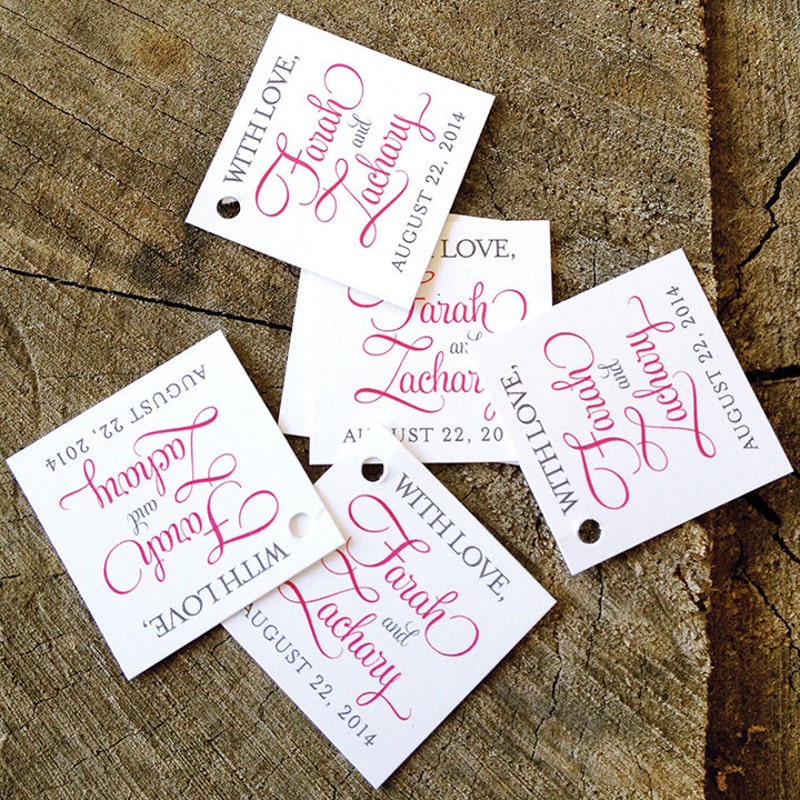 WITH LOVE,
Farah
and
Zachary
AUGUST 22, 2014
LOVE,
Farah
an
Zachary
AUGUST 22, 20
WITH LOVE,
Farah
and
Zachary
AUGUST 22, 2014
WITH LOVE,
Farah
and
Zachary
AUGUST 22, 2014
WITH LOVE,
Farah
and
Zachary
AUGUST 22, 2014